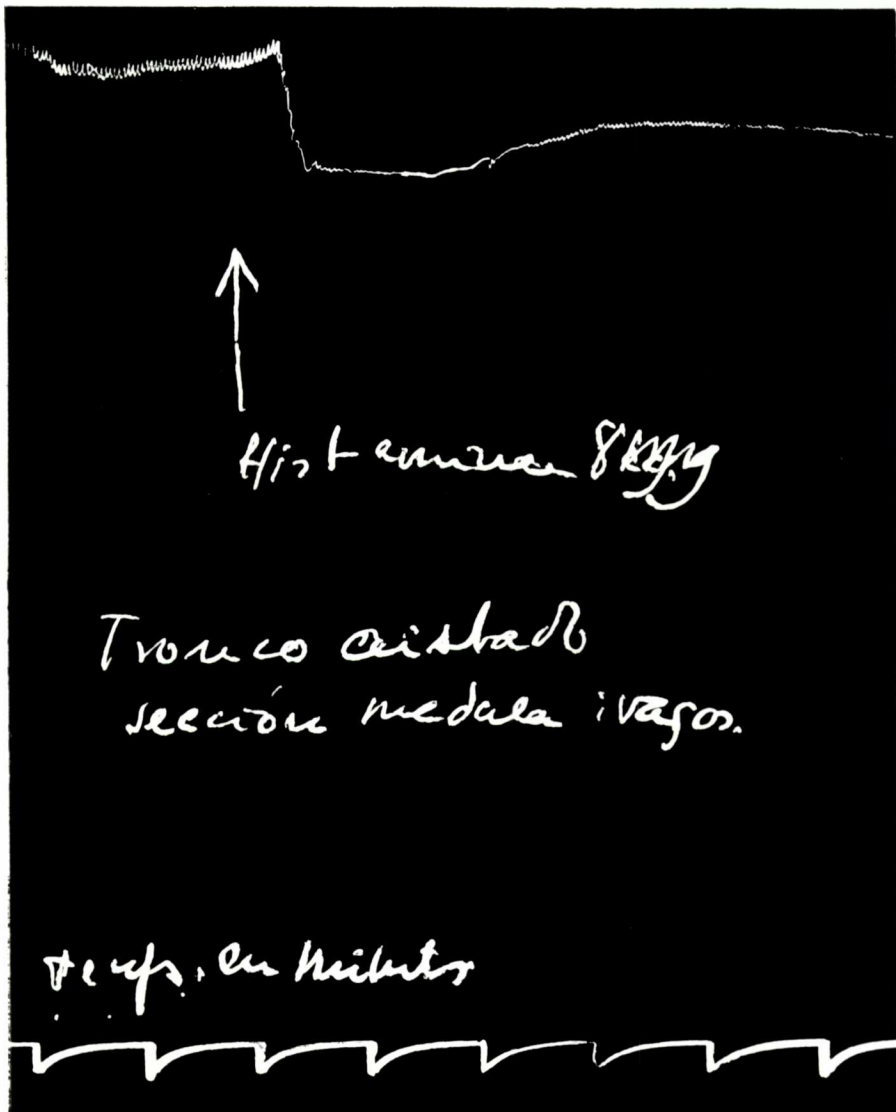 Histamina 8
Tronco aislado
sección medula i vagos.
temps. en minutos